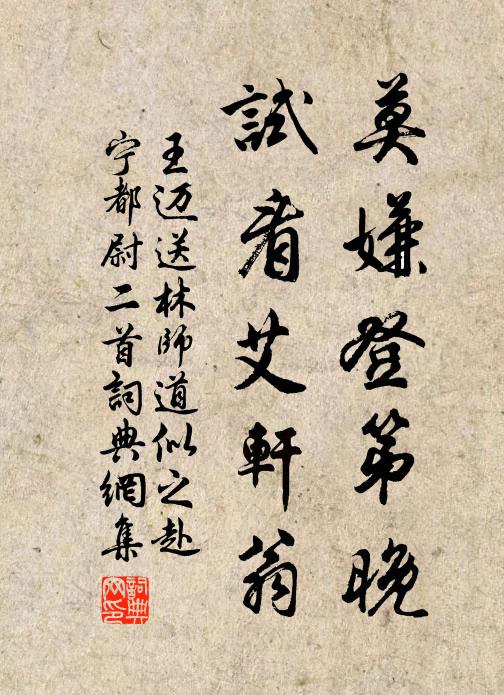 莫嫌登第晚
試看艾軒翁
王迈送林師道似之赴
宁都尉二首詞典網集
詞典
网印